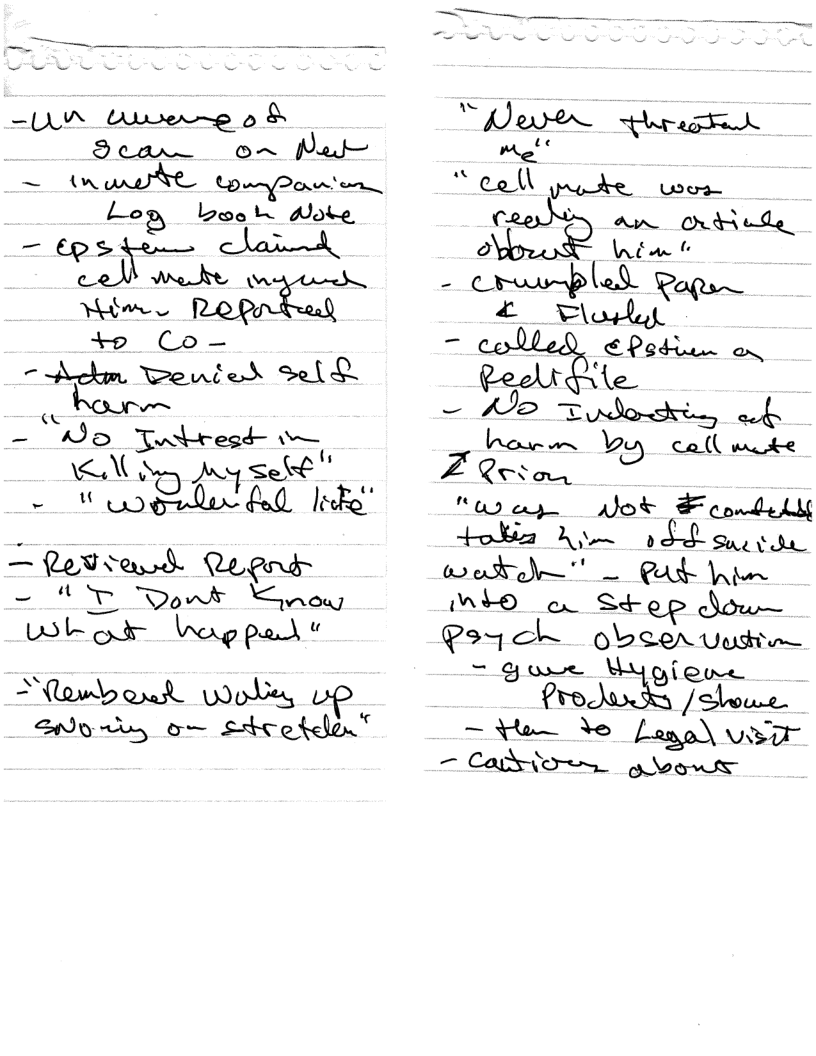 - Un aware of
scar on Neck
- inmate companion
Log book Note
- Epstein claimed
cell mate injured
Him - Reported
to CO -
- Adm Denied self
harm
- "No Intrest in
Killing Myself"
- "wonderful life"
- Reviewed Report
- "I Dont Know
what happend"
- "Rembered waking up
snoring on stretcher"
"Never threatend
me"
"cell mate was
reading an article
about him"
- crumpled Paper
& Flushed
- called Epstien a
Pedifile
- No Indecating of
harm by cell mate
Prior
"was Not
taking him off suicide
watch" - Put him
into a step down
psych observation
- gave Hygiene
Products/Shower
- then to Legal visit
- Cautious about